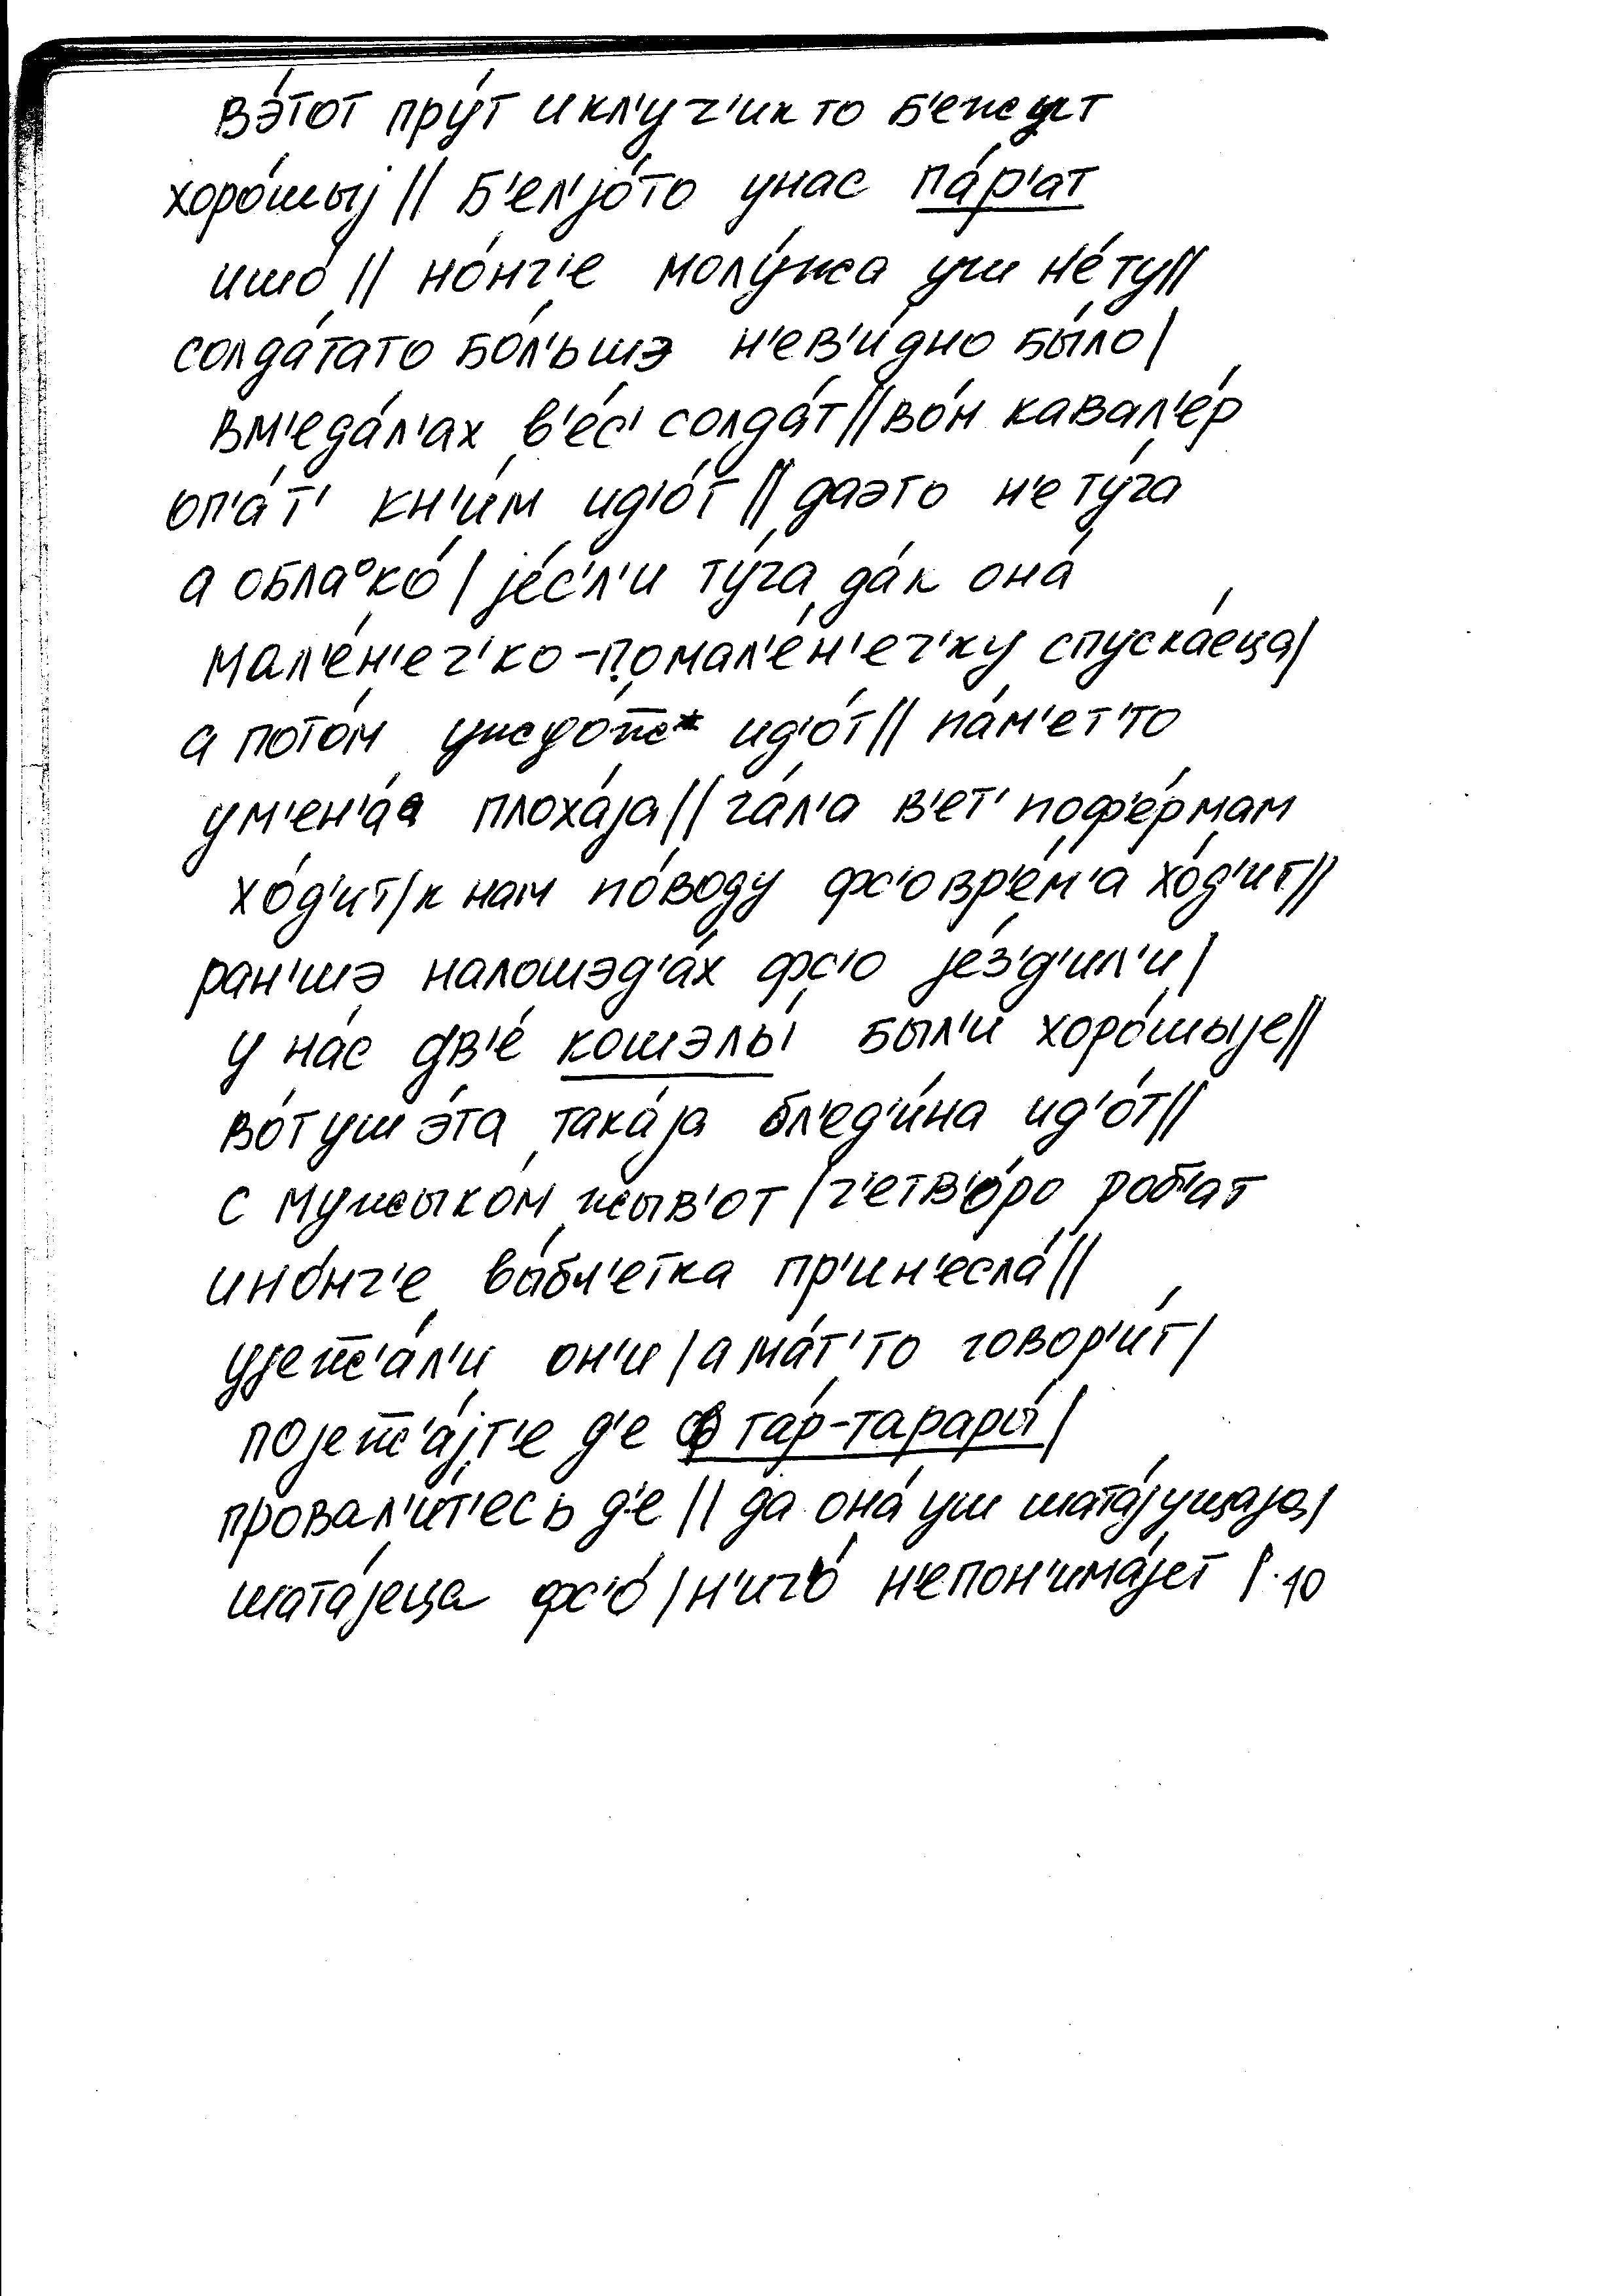 вэ́тот пру́т и кл'у́ч'ик то б'ежыт
хоро́шыj || б'ел'jо́то унас па́р'ат
ишо́ || но́нч'е молу́жа уш н'е́ту ||
солда́тато бо́л'ьшэ н'ев'и́дно бы́ло |
вм'еда́л'ах в'е́с' солда́т || во́н кавал'е́р
оп'а́т' кн'и́м ид'о́т || даэто н'е ту́ча
а обла°ко́ | jе́с'л'и ту́ча да́к она́
мал'е́н'еч'ко-помал'е́н'еч'ку спуска́еца |
а пото́м ид'о́т || па́м'ет'то
ум'ен'а́а плоха́jа || га́л'а в'ет' поф'е́рмам
хо́д'ит | к нам по́воду фс'о вр'е́м'а хо́д'ит ||
ран'шэ налошэд'а́х фс'о jе́з'д'ил'и |
у на́с дв'е́ кошэлы́ был'и хоро́шыjе ||
во́т уш э́та така́jа бл'ед'и́на ид'о́т ||
с мужыко́м жыв'от | ч'етв'о́ро роб'ат
ино́нч'е вы́бл'етка пр'ин'есла́ ||
уjежж'а́л'и он'и | а ма́т'то говор'и́т |
поjежж'а́jт'е д'е ф та́р-тарары́ |
провал'и́т'есь д'е || да она́ уш шата́jущаjа |
шата́jеца фс'о́ | н'ичо́ н'епон'има́jет |. 10